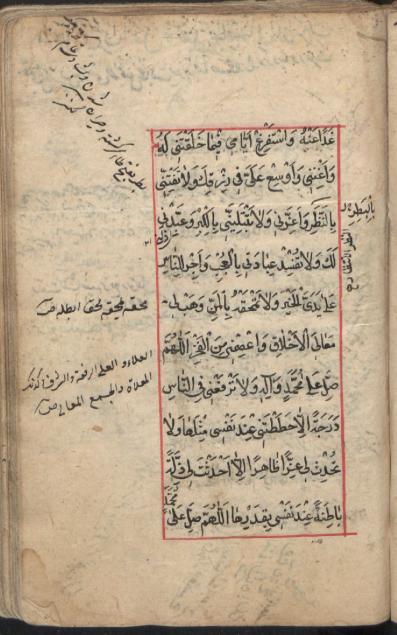 غَدًا عَنْهُ وَاسْتَفْرِغْ اَيَّامِي فِيمَا خَلَقْتَنِي لَهُ
وَاَغْنِنِي وَاَوْسِعْ عَلَيَّ فِي رِزْقِكَ وَلَا تَفْتِنِّي
بِالنَّظَرِ وَاَعِزَّنِي وَلَا تَبْتَلِيَنِّي بِالْكِبْرِ وَعَبِّدْنِي
لَكَ وَلَا تُفْسِدْ عِبَادَتِي بِالْعُجْبِ وَاَجْرِ لِلنَّاسِ
عَلَى يَدَيَّ الْخَيْرَ وَلَا تَمْحَقْهُ بِالْمَنِّ وَهَبْ لِي
مَعَالِيَ الْاَخْلَاقِ وَاعْصِمْنِي مِنَ الْفَخْرِ اَللّٰهُمَّ
صَلِّ عَلَى مُحَمَّدٍ وَآلِهِ وَلَا تَرْفَعْنِي فِي النَّاسِ
دَرَجَةً اِلَّا حَطَطْتَنِي عِنْدَ نَفْسِي مِثْلَهَا وَلَا
تُحْدِثْ لِي عِزًّا ظَاهِرًا اِلَّا اَحْدَثْتَ لِي ذِلَّةً
بَاطِنَةً عِنْدَ نَفْسِي بِقَدَرِهَا اَللّٰهُمَّ صَلِّ عَلَى
مُحَمَّدٍ
بِالْبَطَرِ
العلاء و العلى الرفعة والشرف وكذلك
المعلاة والجمع المعالي ص